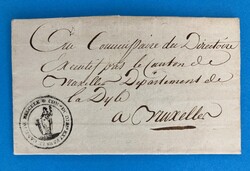 Au Commissaire du Directoire
Executif près le canton de
Bruxelles Département de
la Dyle
a Bruxelles